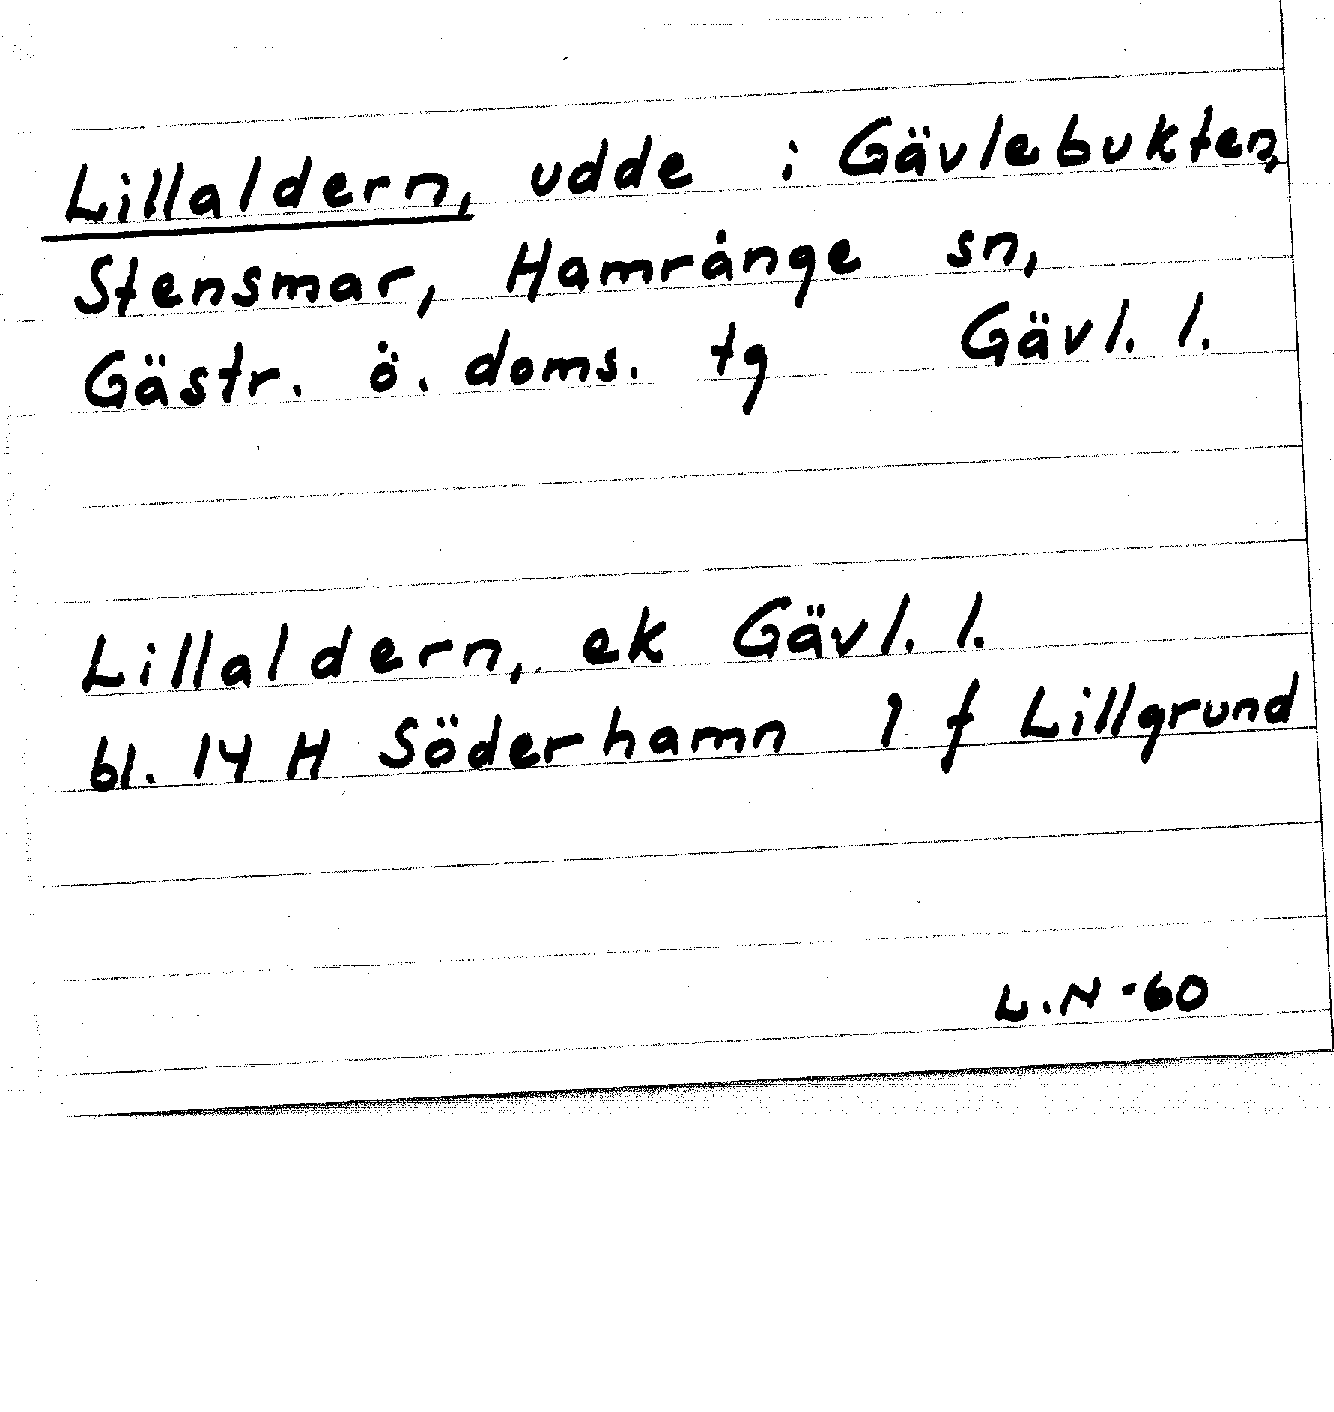 Lillaldern, udde i Gävlebukten,
Stensmar, Hamrånge sn,
Gästr. ö. doms. tg Gävl. l.
Lillaldern, ek Gävl. l.
bl. 14 H Söderhamn 1 f Lillgrund
L.N -60